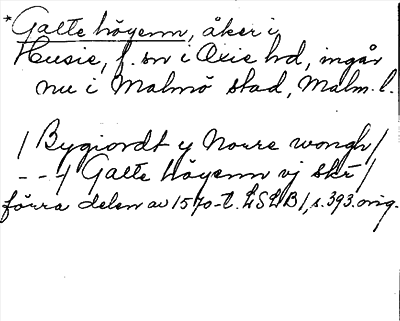 *Galte höyenn, åker i
Husie, f. sn i Oxie hd, ingår
nu i Malmö stad, Malm. l.
/ Bygiordt y Norre wongh/
- - / Galte höyenn vj skr /
förra delen av 1570-t. LSLB 1, s. 393. orig.